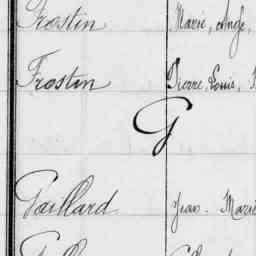 Frostin Marie, Ange,
Frostin Pierre, Louis,
G
Gaillard Jean - Marie